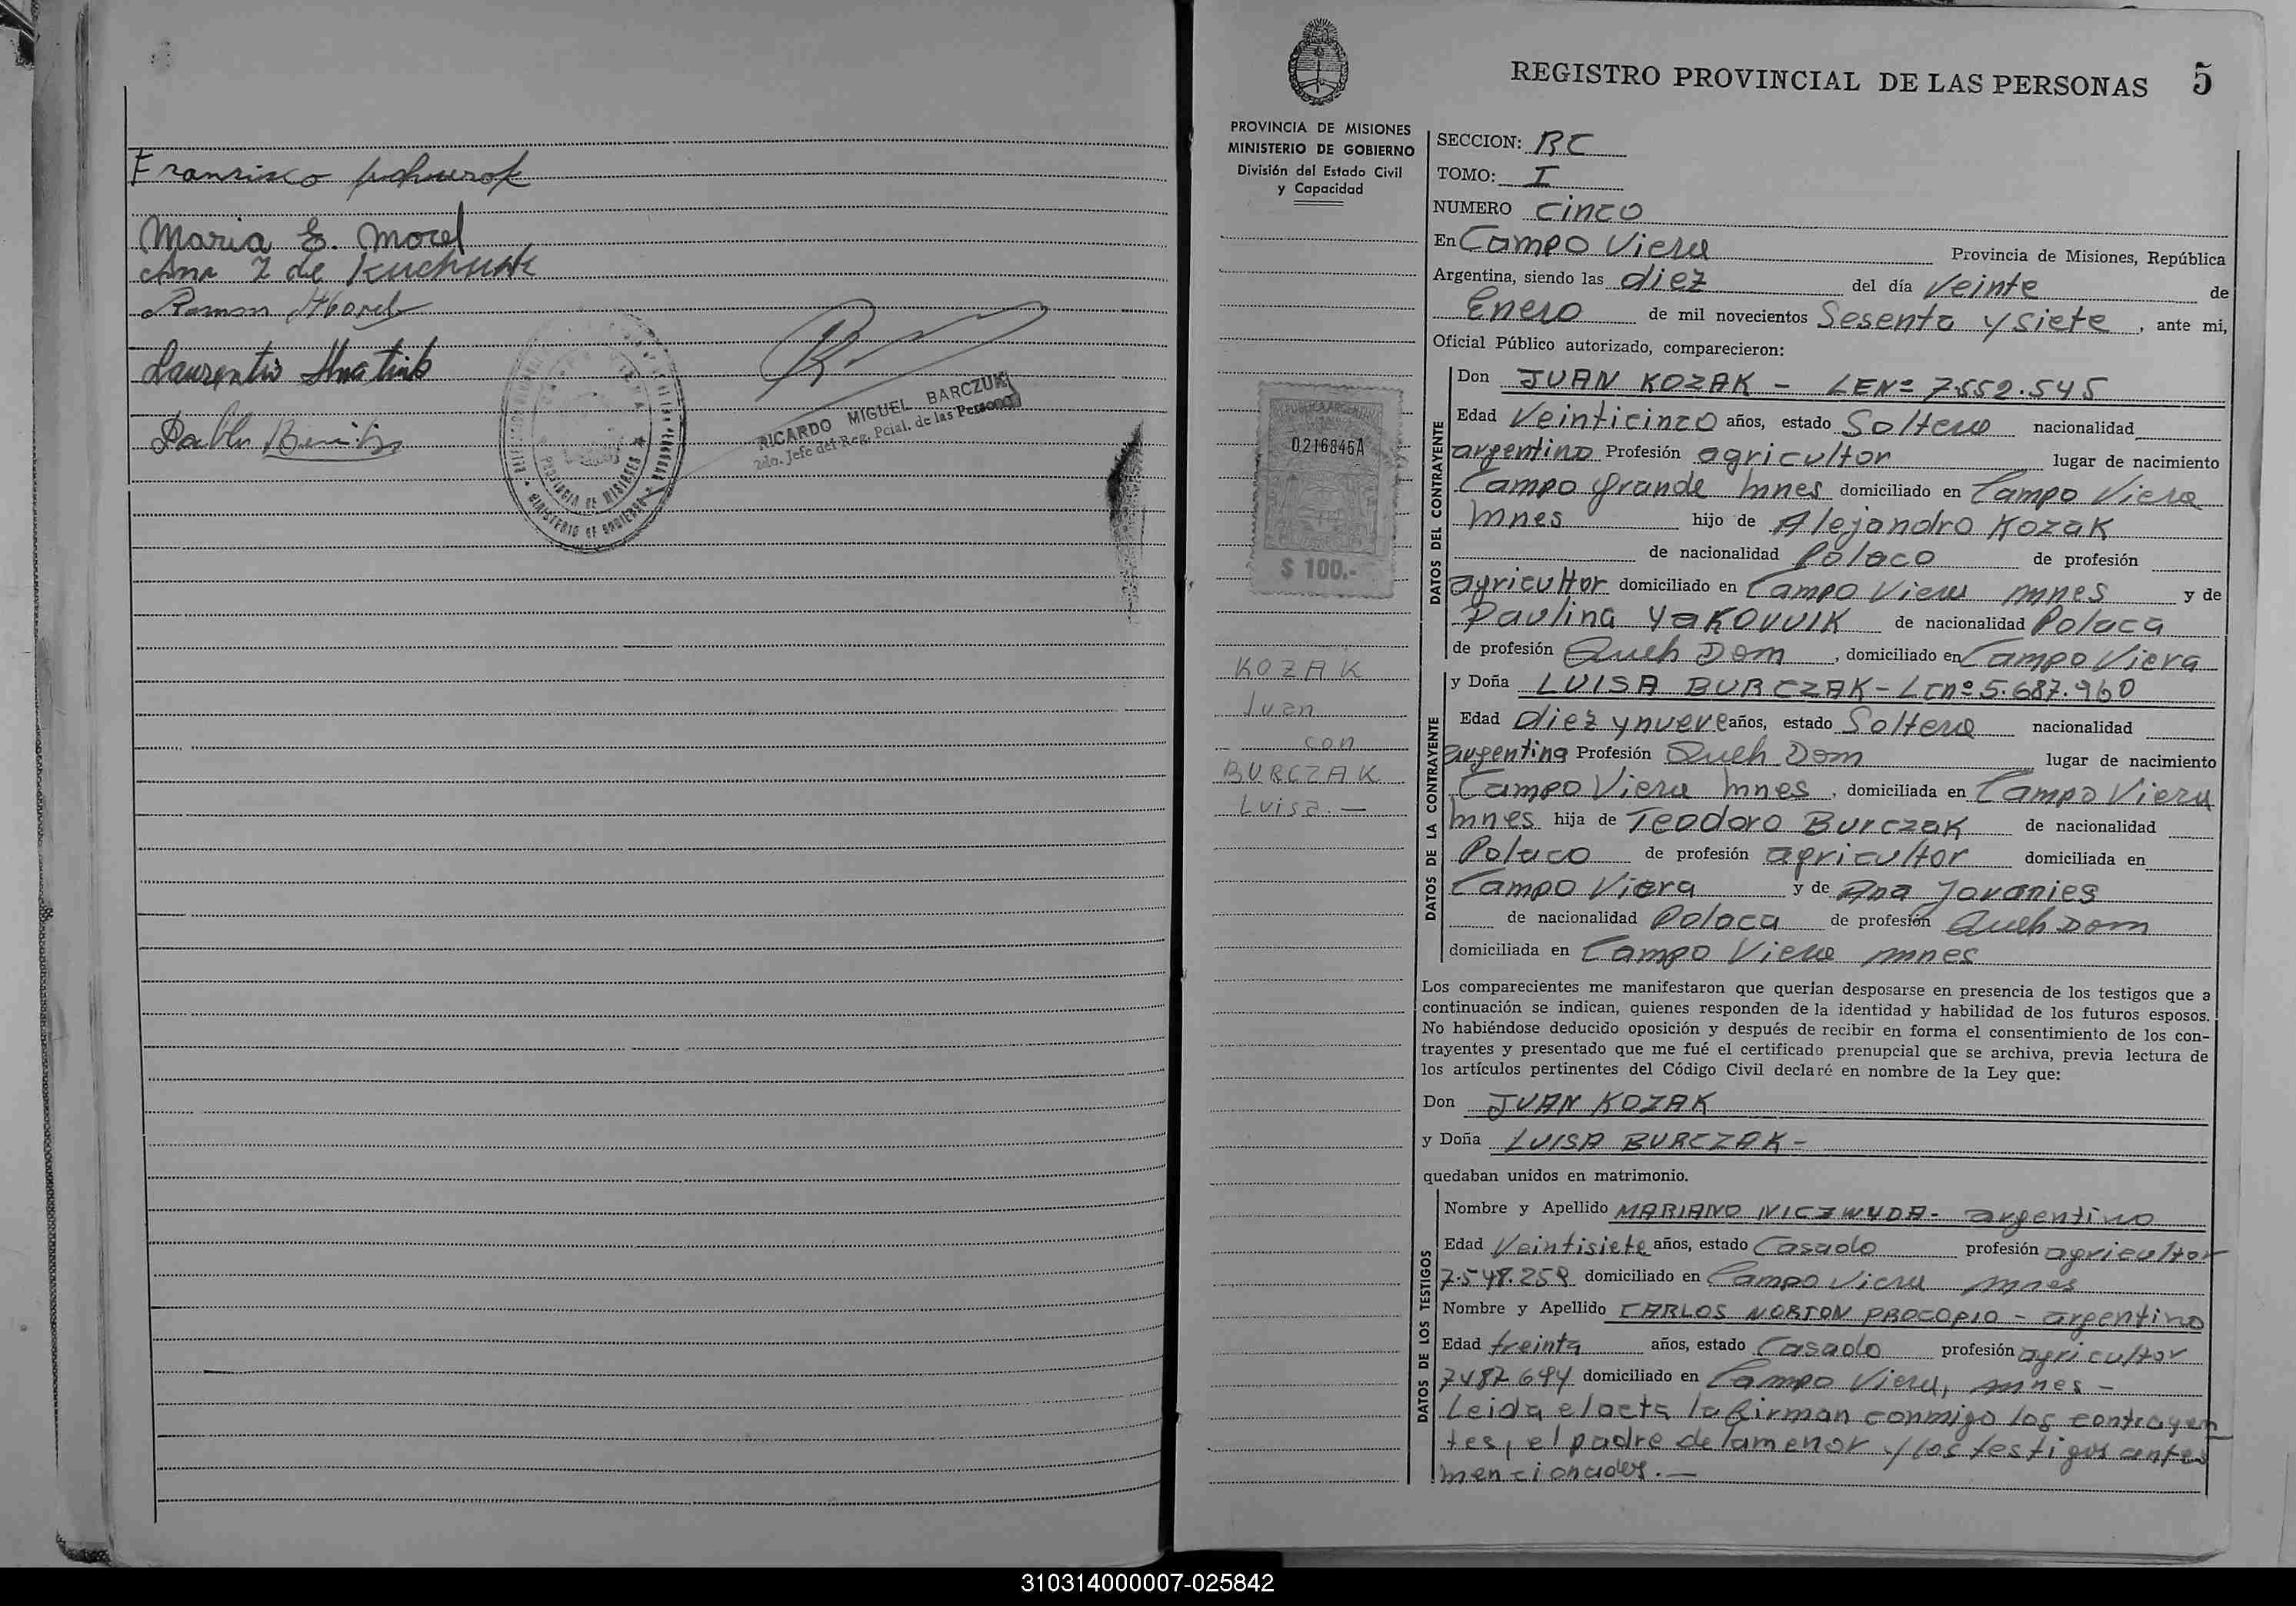 Fransisco
Maria E. Morel
Ana Z de Kuchuk
Ramon Morel
Laurentio Hnatiuk
Pablo Benitez
RICARDO MIGUEL BARCZUK
2do. Jefe del Reg. Pcial. de las Personas
PROVINCIA DE MISIONES
MINISTERIO DE GOBIERNO
REGISTRO PROVINCIAL DE LAS PERSONAS 5
PROVINCIA DE MISIONES
MINISTERIO DE GOBIERNO
División del Estado Civil
y Capacidad
REPUBLICA ARGENTINA
0216846A
$ 100.-
KOZAK
Juan
con
BURCZAK
Luisa.—
SECCION: RC
TOMO: I
NUMERO cinco
En Campo Viera Provincia de Misiones, República
Argentina, siendo las diez del día veinte de
Enero de mil novecientos Sesenta y siete, ante mi,
Oficial Público autorizado, comparecieron:
DATOS DEL CONTRAYENTE
Don JUAN KOZAK - LENº 7.552.545
Edad Veinticinco años, estado Soltero nacionalidad
argentino Profesión agricultor lugar de nacimiento
Campo Grande Mnes domiciliado en Campo Viera
Mnes hijo de Alejandro Kozak
de nacionalidad Polaco de profesión
agricultor domiciliado en Campo Viera Mnes y de
Paulina Yakovuik de nacionalidad Polaca
de profesión Queh Dom, domiciliado en Campo Viera
DATOS DE LA CONTRAYENTE
y Doña LUISA BURCZAK - LCnº 5.687.960
Edad diez y nueve años, estado Soltera nacionalidad
argentina Profesión Queh Dom lugar de nacimiento
Campo Viera Mnes, domiciliada en Campo Viera
Mnes hija de Teodoro Burczak de nacionalidad
Polaco de profesión agricultor domiciliada en
Campo Viera y de Ana Jovanies
de nacionalidad Polaca de profesión Queh Dom
domiciliada en Campo Viera Mnes
Los comparecientes me manifestaron que querían desposarse en presencia de los testigos que a
continuación se indican, quienes responden de la identidad y habilidad de los futuros esposos.
No habiéndose deducido oposición y después de recibir en forma el consentimiento de los con-
trayentes y presentado que me fué el certificado prenupcial que se archiva, previa lectura de
los artículos pertinentes del Código Civil declaré en nombre de la Ley que:
Don JUAN KOZAK
y Doña LUISA BURCZAK -
quedaban unidos en matrimonio.
DATOS DE LOS TESTIGOS
Nombre y Apellido MARIANO NICZWYDA - argentino
Edad Veintisiete años, estado Casado profesión agricultor
7.548.259 domiciliado en Campo Viera Mnes
Nombre y Apellido CARLOS NORTON PROCOPIO - argentino
Edad treinta años, estado Casado profesión agricultor
7487694 domiciliado en Campo Viera, Mnes -
Leida el acta la firman conmigo los contrayen
tes, el padre de la menor y los testigos antes
mencionados.—
310314000007-025842